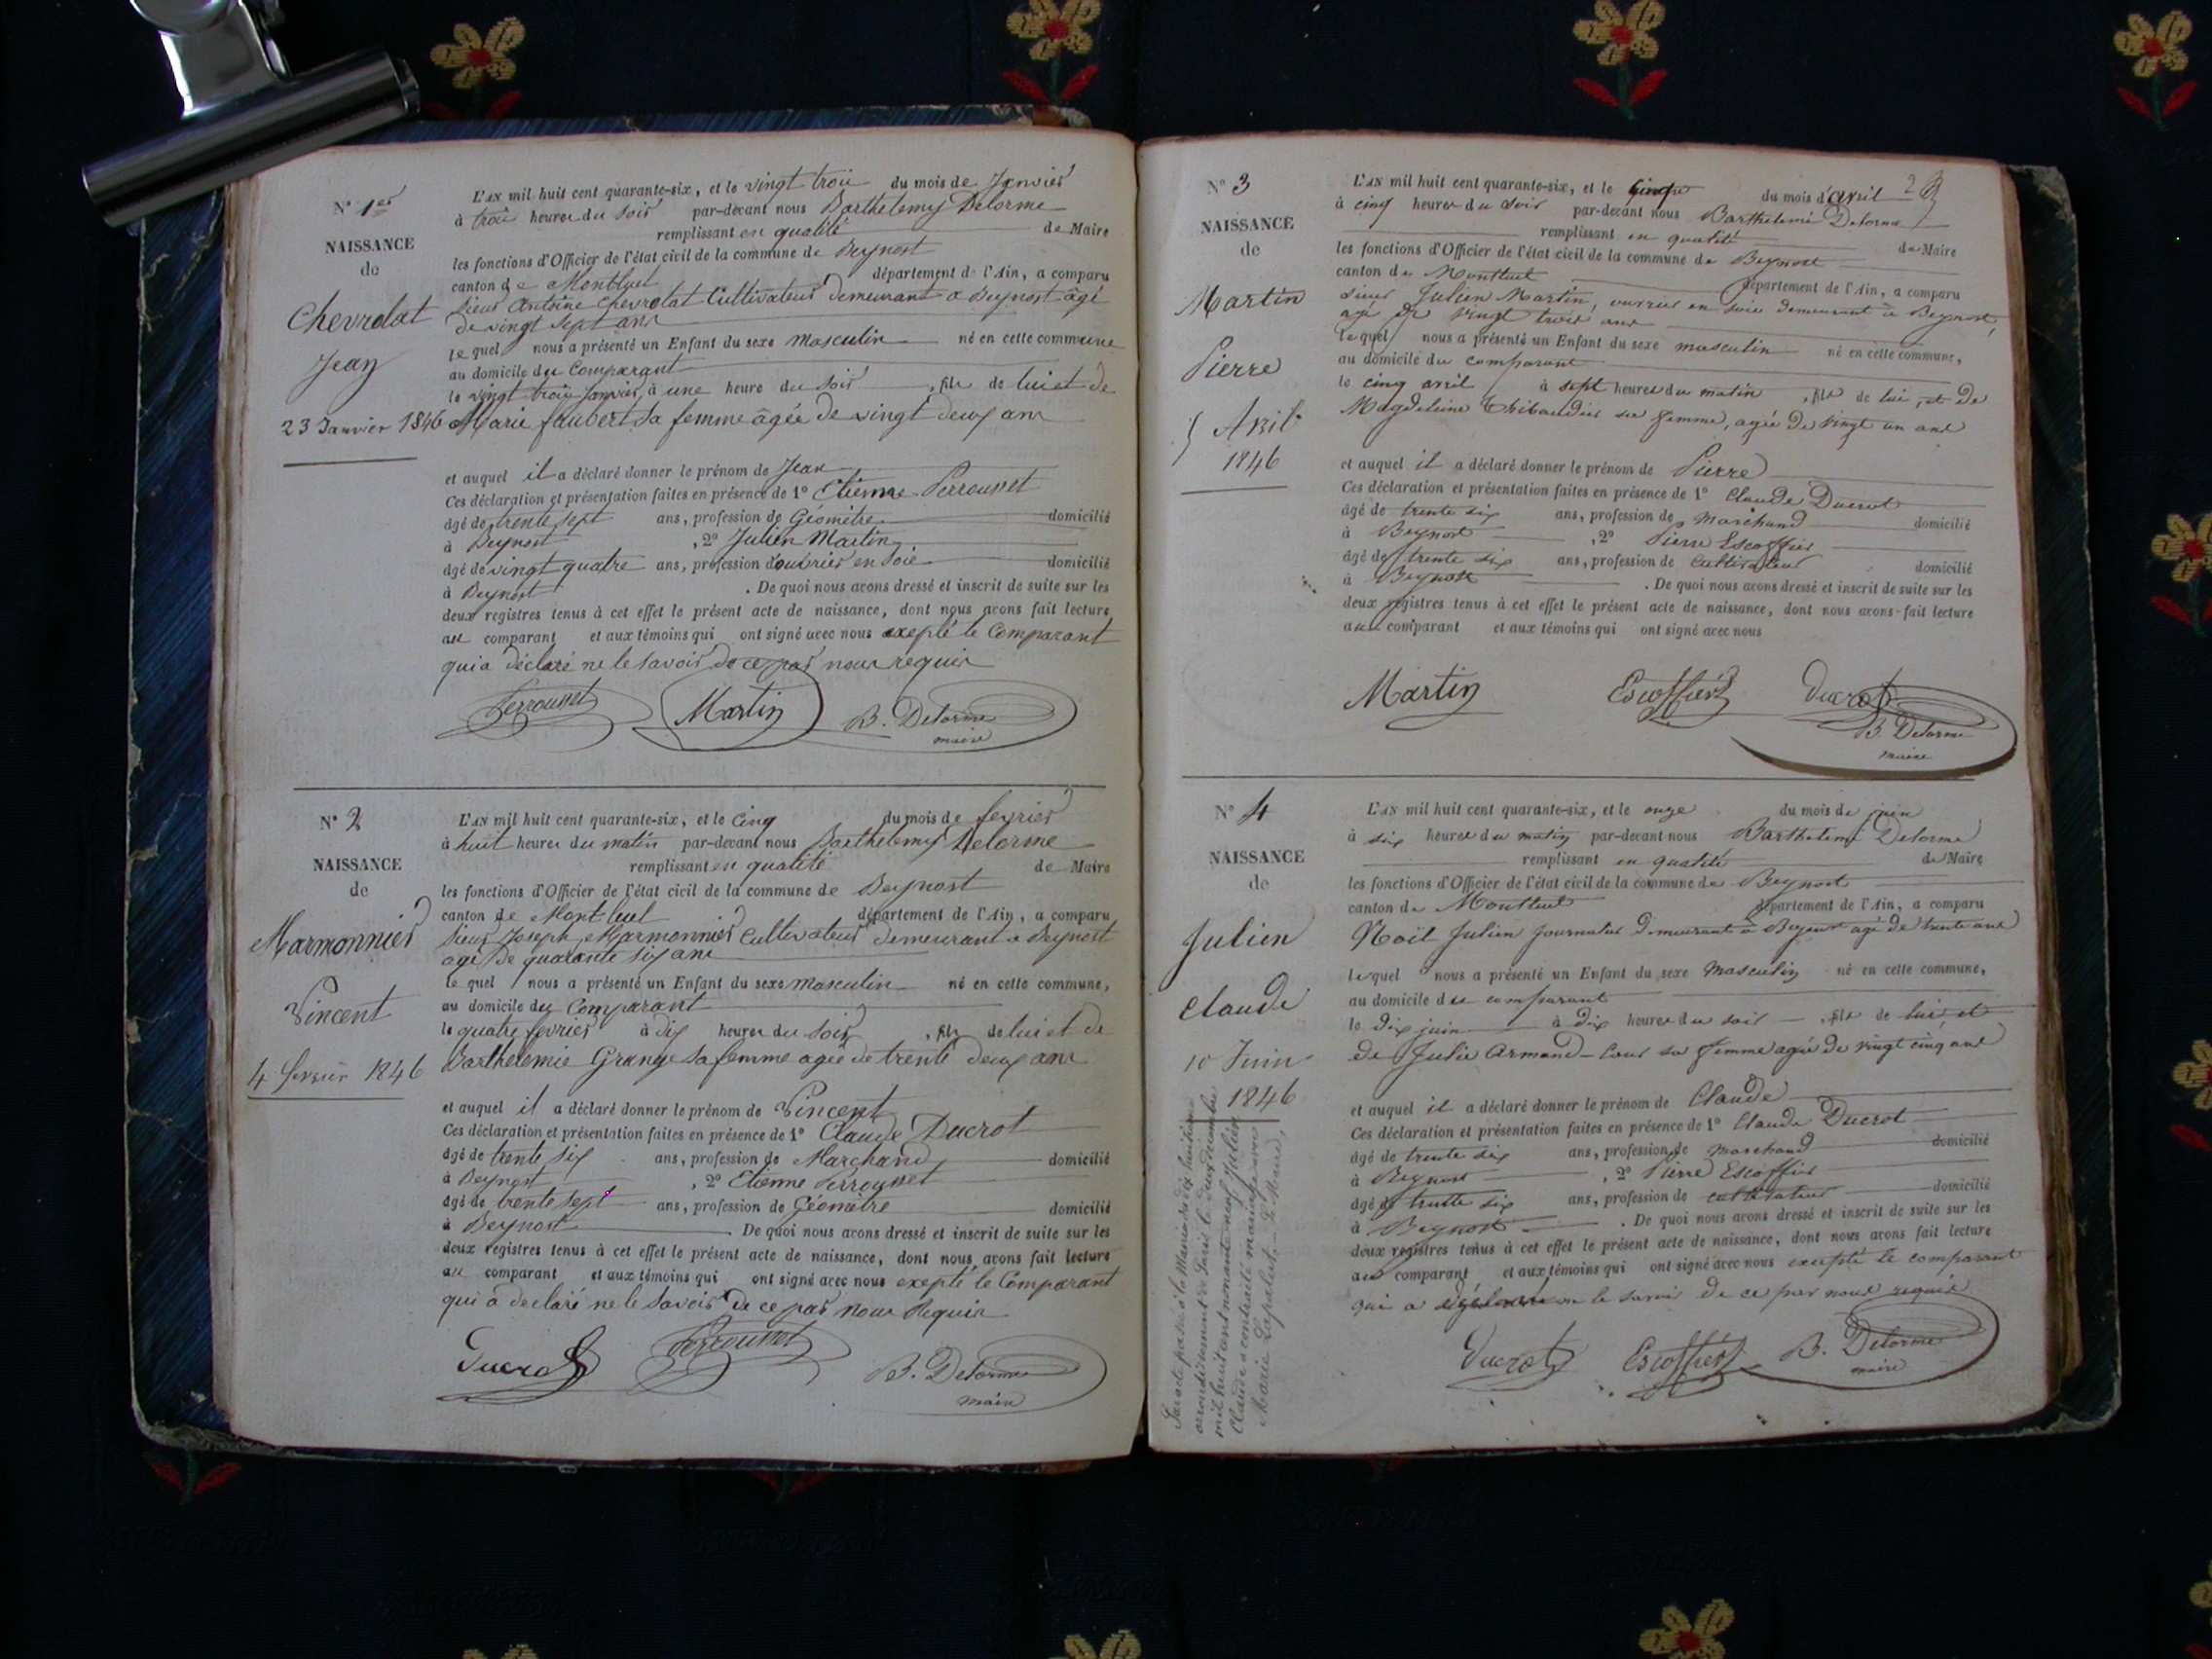 N° 1er
NAISSANCE
de
Chevrolat
Jean
23 Janvier 1846
L'AN mil huit cent quarante-six, et le vingt trois du mois de Janvier
à trois heures du soir par-devant nous Barthelemy Delorme
remplissant en qualité de Maire
les fonctions d'Officier de l'état civil de la commune de Beynost
canton de Montluel département de l'Ain, a comparu
sieur Antoine Chevrolat Cultivateur demeurant a Beynost âgé
de vingt sept ans
lequel nous a présenté un Enfant du sexe masculin né en cette commune
au domicile du Comparant
le vingt trois Janvier, à une heure du soir, fils de lui et de
Marie faubert sa femme âgée de vingt deux ans
et auquel il a déclaré donner le prénom de Jean
Ces déclaration et présentation faites en présence de 1° Etienne Perrousset
âgé de trente sept ans, profession de Géomètre domicilié
à Beynost, 2° Julien Martin
âgé de vingt quatre ans, profession d'ouvrier en soie domicilié
à Beynost. De quoi nous avons dressé et inscrit de suite sur les
deux registres tenus à cet effet le présent acte de naissance, dont nous avons fait lecture
au comparant et aux témoins qui ont signé avec nous exepté le Comparant
qui a déclaré ne le savoir de ce par nous requis
Perrousset Martin B. Delorme
maire
N° 2
NAISSANCE
de
Marmonnier
Vincent
4 fevrier 1846
L'AN mil huit cent quarante-six, et le cinq du mois de fevrier
à huit heures du matin par-devant nous Barthelemy Delorme
remplissant en qualité de Maire
les fonctions d'Officier de l'état civil de la commune de Beynost
canton de Montluel département de l'Ain, a comparu
sieur Joseph Marmonnier Cultivateur demeurant a Beynost
agé de quarante six ans
lequel nous a présenté un Enfant du sexe masculin né en cette commune,
au domicile du Comparant
le quatre fevrier à dix heures du soir, fils de lui et de
Barthelemie Grange sa femme agée de trente deux ans
et auquel il a déclaré donner le prénom de Vincent
Ces déclaration et présentation faites en présence de 1° Claude Ducrot
âgé de trente six ans, profession de Marchand domicilié
à Beynost, 2° Etienne Perrousset
âgé de trente sept ans, profession de Géomètre domicilié
à Beynost. De quoi nous avons dressé et inscrit de suite sur les
deux registres tenus à cet effet le présent acte de naissance, dont nous avons fait lecture
au comparant et aux témoins qui ont signé avec nous exepté le Comparant
qui a declaré ne le savoir de ce par nous Requis
Ducrot Perrousset B. Delorme
maire
N° 3
NAISSANCE
de
Martin
Pierre
5 Avril
1846
L'AN mil huit cent quarante-six, et le cinq du mois d'avril
à cinq heures du soir par-devant nous Barthelemi Delorme
remplissant en qualité de Maire
les fonctions d'Officier de l'état civil de la commune de Beynost
canton de Montluel département de l'Ain, a comparu
sieur Julien Martin, ouvrier en soie demeurant à Beynost,
agé de vingt trois ans
lequel nous a présenté un Enfant du sexe masculin né en cette commune,
au domicile du comparant
le cinq avril à sept heures du matin, fils de lui, et de
Magdeleine Thibaudier sa femme, agée de vingt un ans
et auquel il a déclaré donner le prénom de Pierre
Ces déclaration et présentation faites en présence de 1° Claude Ducrot
âgé de trente six ans, profession de marchand domicilié
à Beynost, 2° Pierre Escoffier
âgé de trente six ans, profession de cultivateur domicilié
à Beynost. De quoi nous avons dressé et inscrit de suite sur les
deux registres tenus à cet effet le présent acte de naissance, dont nous avons fait lecture
au comparant et aux témoins qui ont signé avec nous
Martin Escoffier Ducrot
B. Delorme
maire
N° 4
NAISSANCE
de
Julien
Claude
10 Juin
1846
L'AN mil huit cent quarante-six, et le onze du mois de juin
à six heures du matin par-devant nous Barthelemi Delorme
remplissant en qualité de Maire
les fonctions d'Officier de l'état civil de la commune de Beynost
canton de Montluel département de l'Ain, a comparu
Noël Julien journalier demeurant à Beynost agé de trente ans
lequel nous a présenté un Enfant du sexe masculin né en cette commune,
au domicile du comparant
le dix juin à dix heures du soir, fils de lui, et
de Julie Armand sa femme agée de vingt cinq ans
et auquel il a déclaré donner le prénom de Claude
Ces déclaration et présentation faites en présence de 1° Claude Ducrot
âgé de trente six ans, profession de marchand domicilié
à Beynost, 2° Pierre Escoffier
âgé de trente six ans, profession de cultivateur domicilié
à Beynost. De quoi nous avons dressé et inscrit de suite sur les
deux registres tenus à cet effet le présent acte de naissance, dont nous avons fait lecture
au comparant et aux témoins qui ont signé avec nous excepté le comparant
qui a le savoir de ce par nous requis
Ducrot Escoffier B. Delorme
maire
Par acte passé à la Mairie du dix huitième
arrondissement de Paris le deux décembre
mil huit cent nonante neuf Julien
Claude a contracté mariage avec
Marie